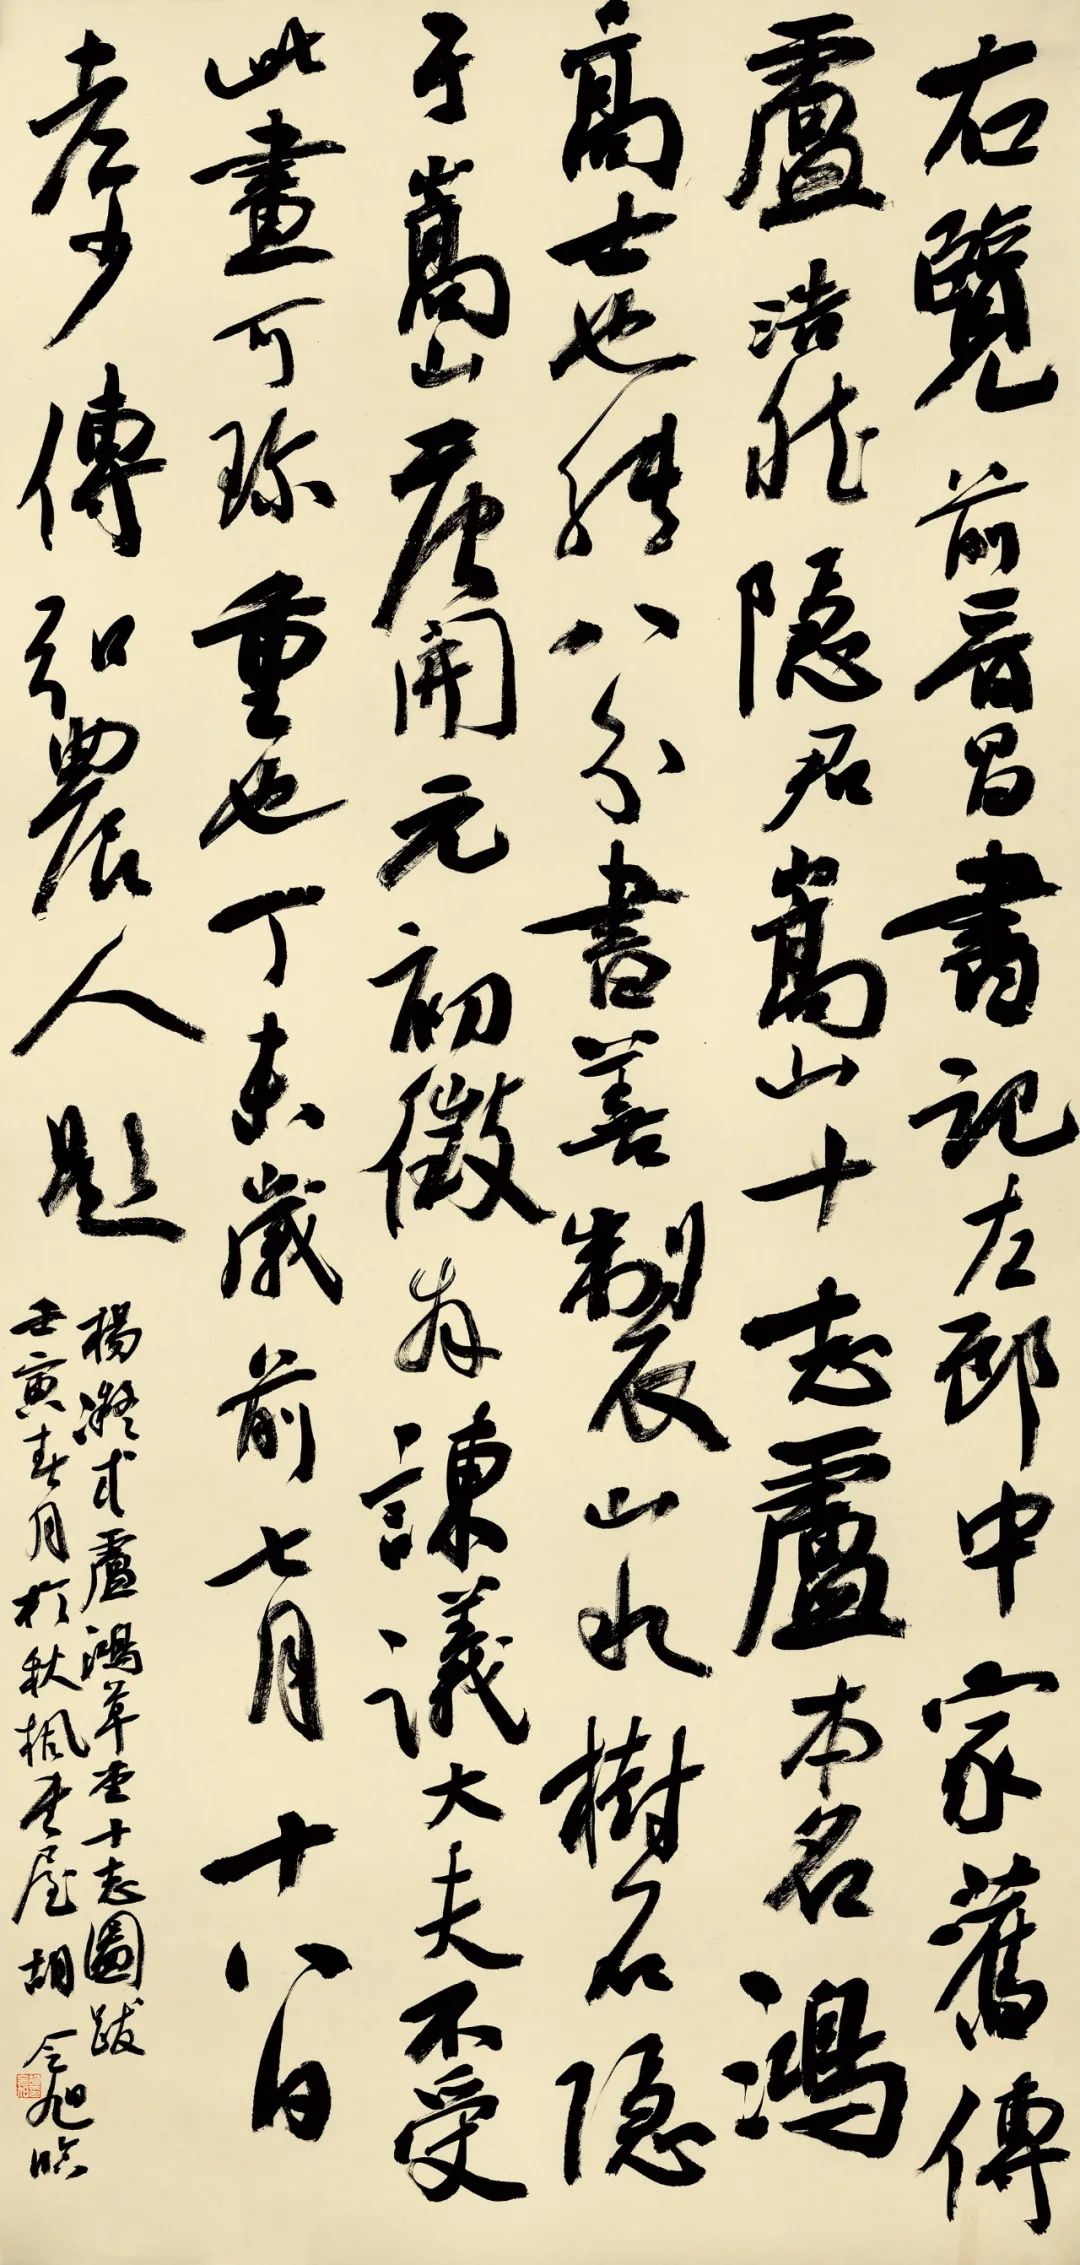 右覽前晉昌書記左郎中家舊傳
盧浩然隱君嵩山十志盧本名鴻
高士也能八分書善製山水樹石隱
于嵩山唐開元初徵為諫議大夫不受
此畫可珍重也丁未歲前七月十八日
老少傅弘農人題
楊凝式盧鴻草堂十志圖跋
壬寅春月於秋楓書屋胡立旭臨